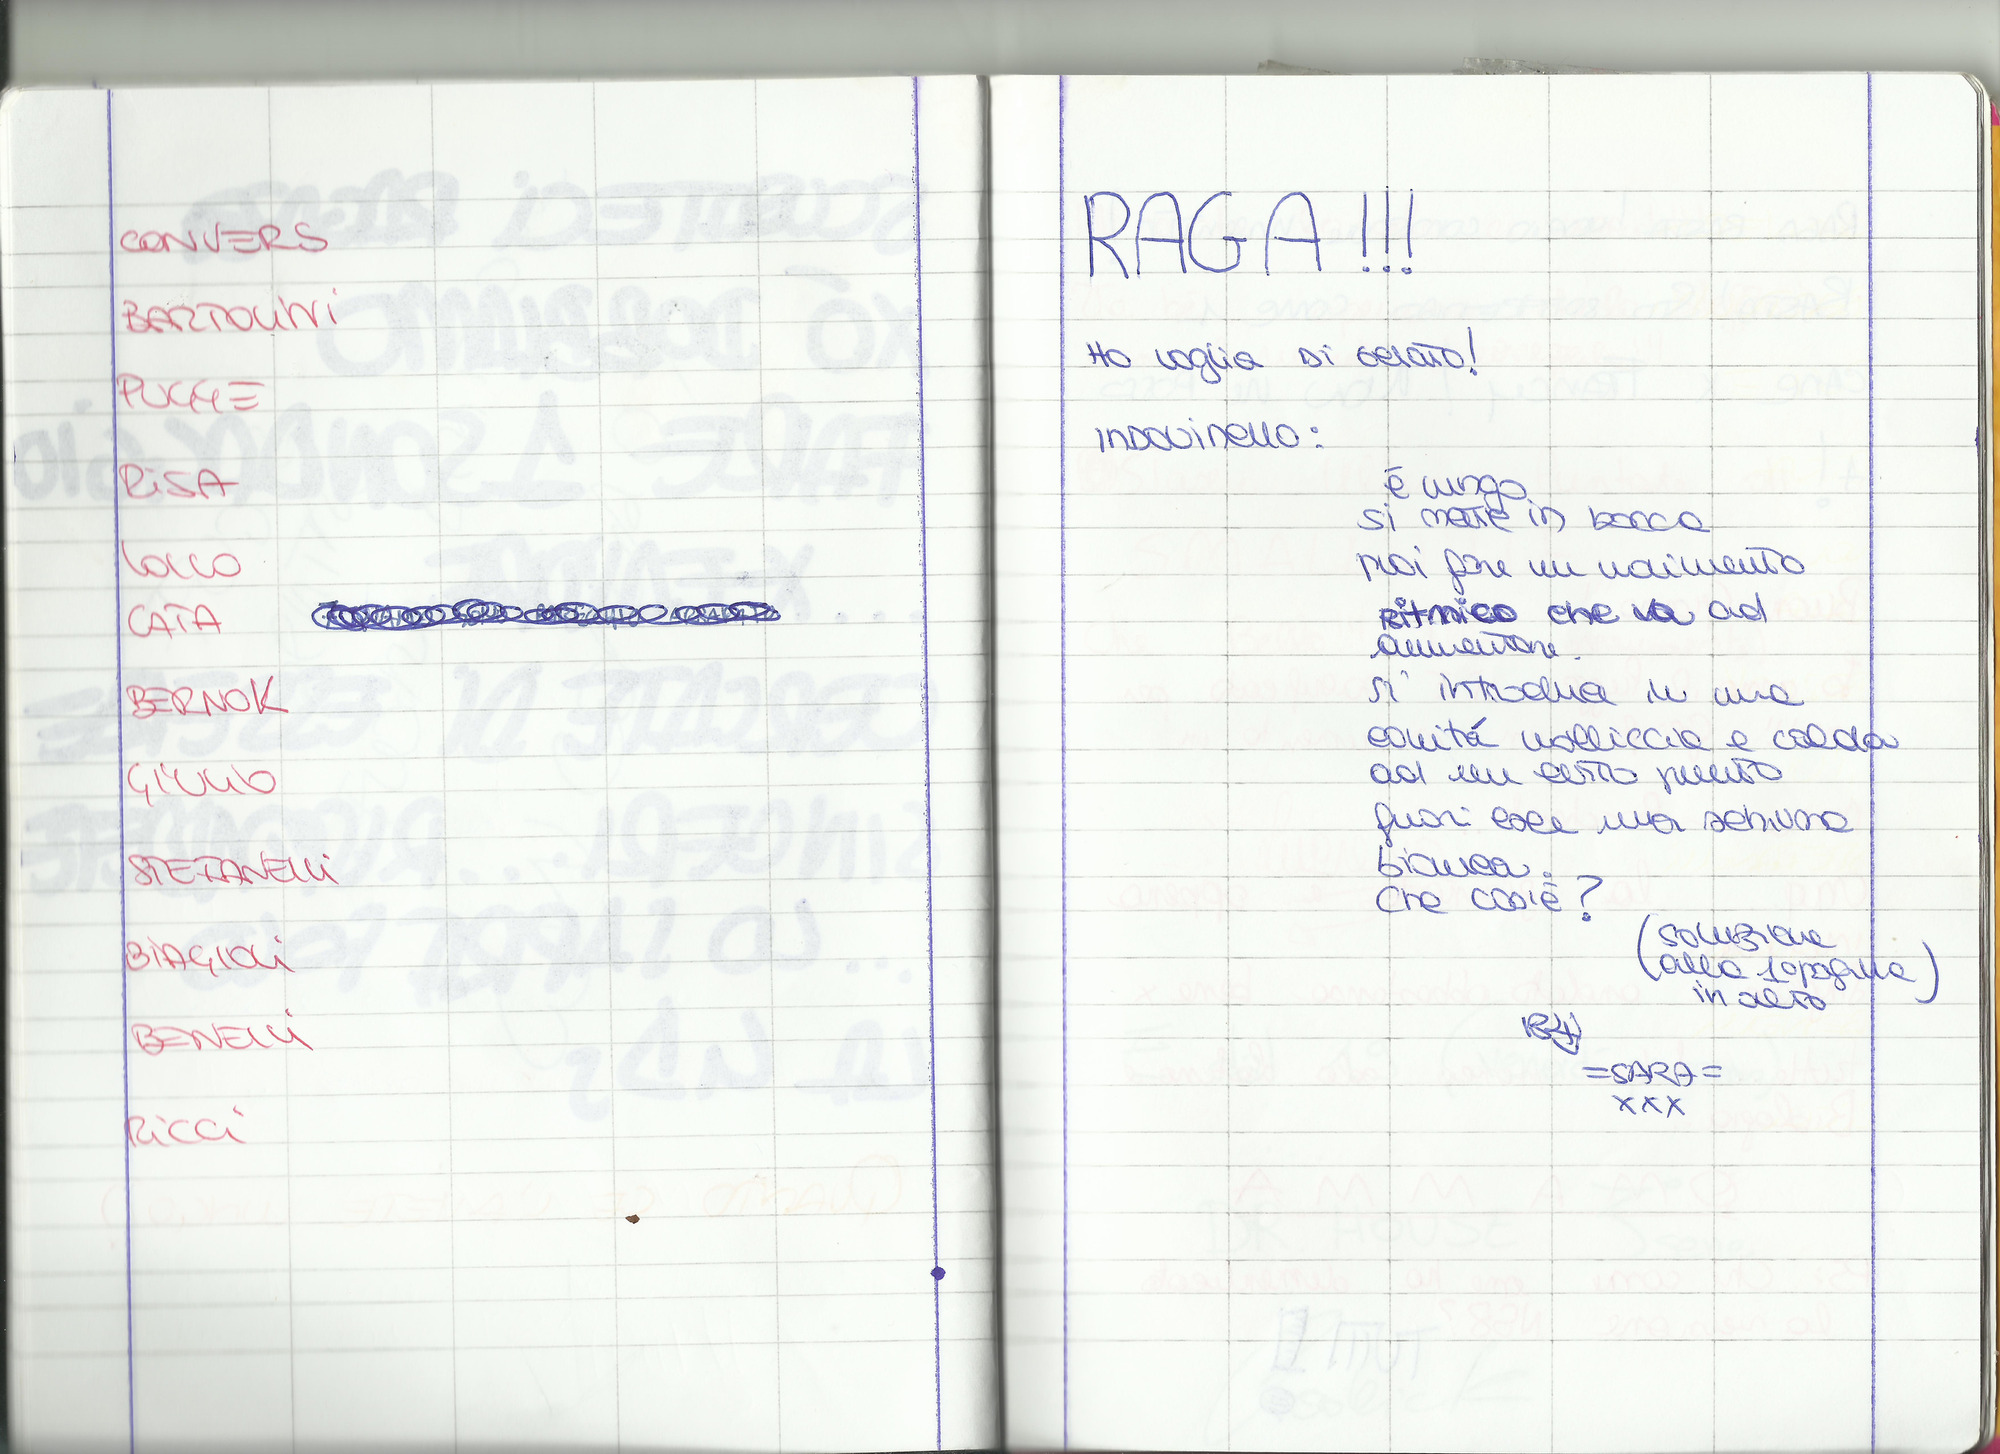 CONVERS
BARTOLINI
PUCCE
RISA
LOLLO
CATA
BERNOK
GIULIO
STEFANELLI
BIAGIOLI
BENELLI
RICCI
RAGA!!!
HO VOGLIA DI GELATO!
INDOVINELLO:
è lungo
si mette in bocca
poi fare un movimento
ritmico che va ad
aumentare.
si introduce in una
cavità molliccia e calda
ad un certo punto
fuori esce una schiuma
bianca.
che cos'è?
(soluzione
alla 1a pagina)
in alto
By
=SARA=
xxx